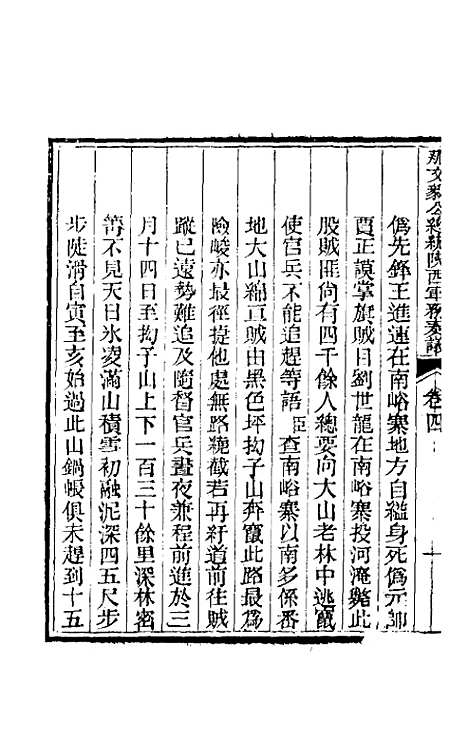 那文毅公總統陝西軍務奏議 卷十四 十
爲先鋒王進連在南峪寨地方自縊身死爲元帥
賈正謨掌旗賊目劉世龍在南峪寨投河淹斃此
股賊匪尙有四千餘人總要向大山老林中逃竄
使官兵不能追趕等語臣查南峪寨以南多係番
地大山綿亘賊由黑色坪拗子山奔竄此路最爲
險峻亦最徑捷他處無路繞截若再紆道前往賊
蹤已遠勢難追及隨督官兵晝夜兼程前進於三
月十四日至拗子山上下一百三十餘里深林密
箐不見天日氷凌滿山積雪初融泥深四五尺步
步陡滑自寅至亥始過此山鍋帳俱未趕到十五